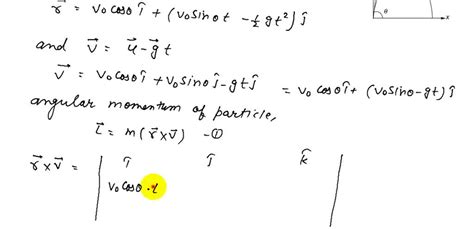 r⃗ = v₀cosθ î + (v₀sinθt - ½gt²) ĵ
θ x
and v⃗ = u⃗ - g⃗ t
v⃗ = v₀cosθ î + v₀sinθ ĵ - gt ĵ = v₀cosθ î + (v₀sinθ - gt) ĵ
angular momentum of particle,
L⃗ = m(r⃗ × v⃗) - ①
r⃗ × v⃗ = | î ĵ k̂ |
v₀cosθ.t